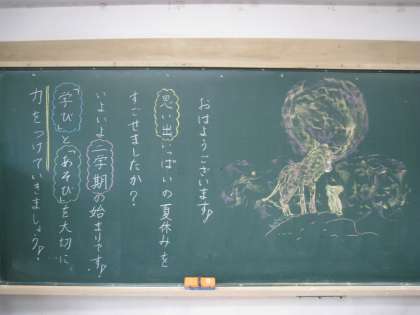 おはようございます!
思い出いっぱいの夏休みを
すごせましたか?
いよいよ二学期の始まりです!
「学び」と「あそび」を大切に
力をつけていきましょう!